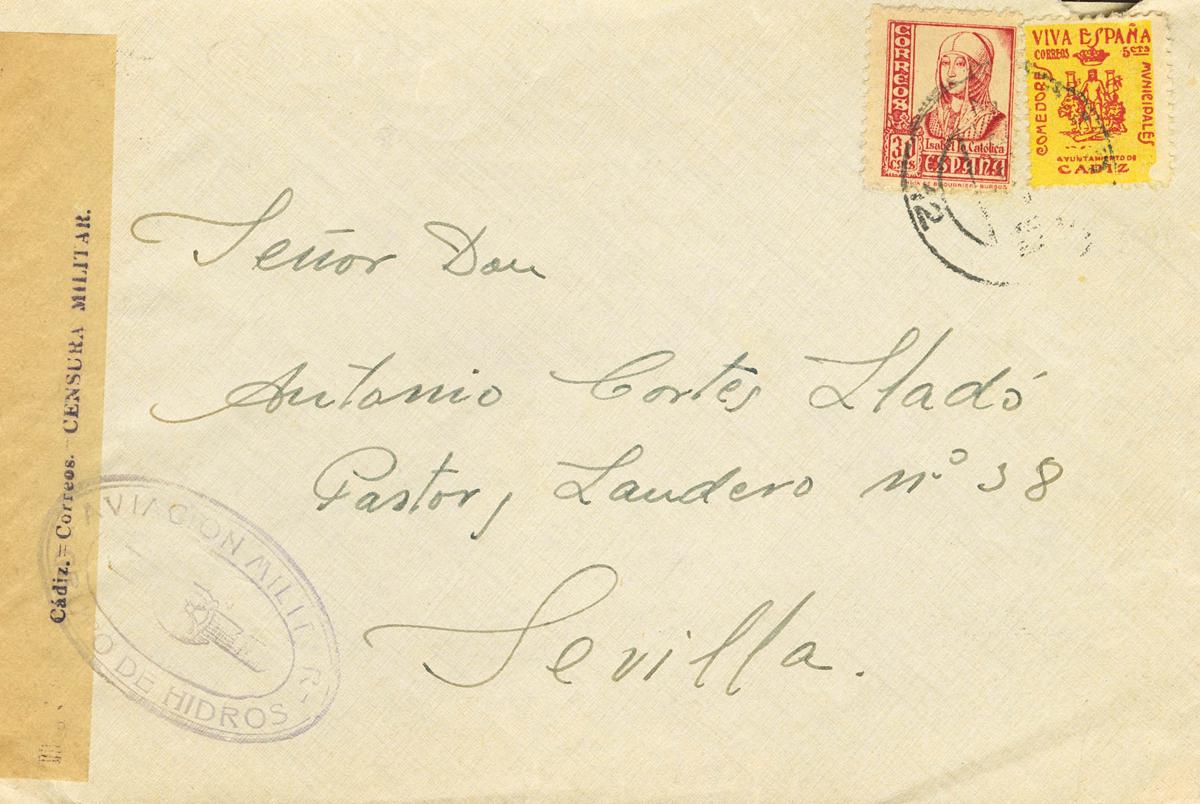 CORREOS
30
CTS
Isabel la Católica
ESPAÑA
VIVA ESPAÑA
CORREOS 5CTS
COMEDORES
MUNICIPALES
AYUNTAMIENTO DE
CADIZ
Señor Don
Antonio Cortés Lladó
Pastor y Landero nº 38
Sevilla.
Cádiz.=Correos.-CENSURA MILITAR.
AVIACION MILITAR-
O DE HIDROS